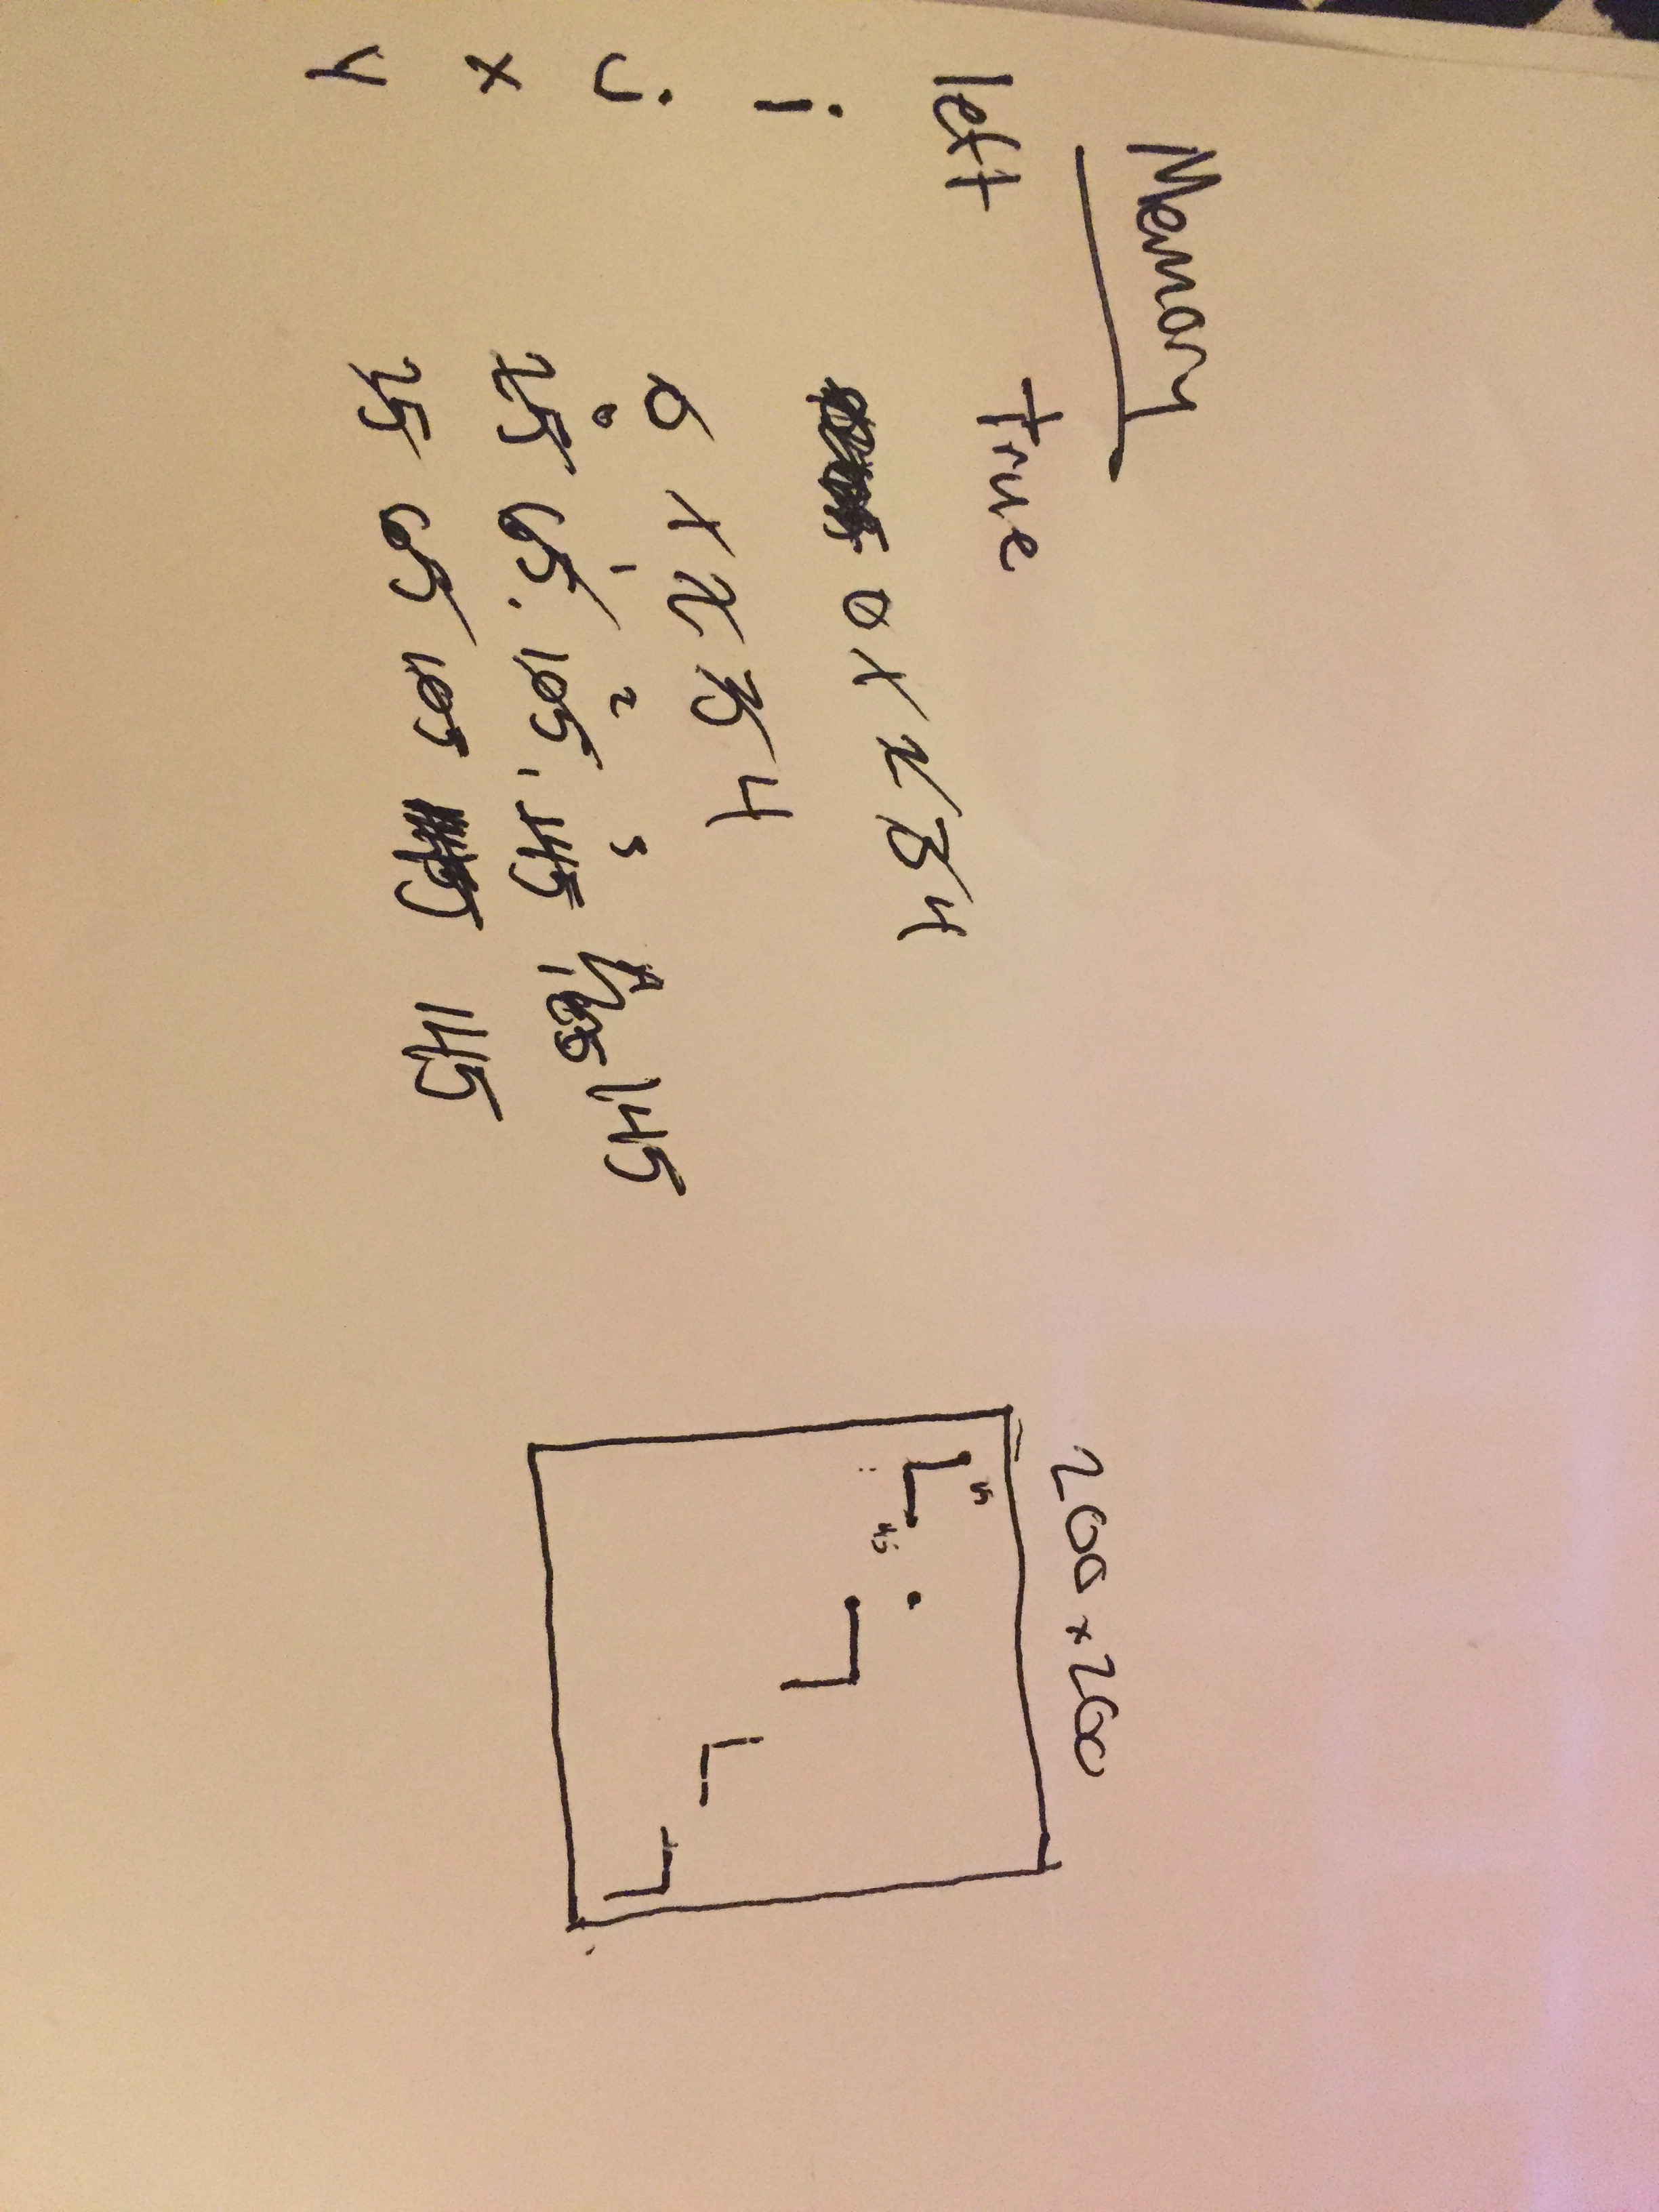 Memory
left true
i 0 1 2 3 4
j 0 1 2 3 4
0 1 2 3 4
x 25 65. 105, 145, 145
y 25 65 105 145
200 x 200